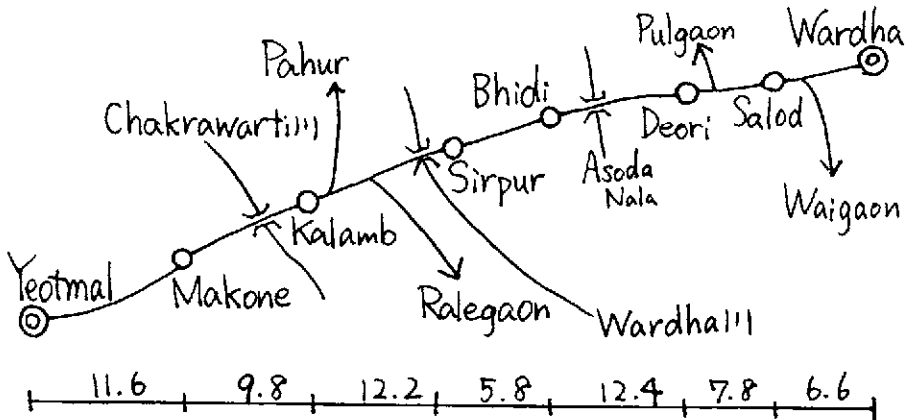 Pulgaon
Wardha
Pahur
Bhidi
Chakrawarti川
Deori
Salod
Sirpur
Asoda
Nala
Waigaon
Kalamb
Yeotmal
Makone
Ralegaon
Wardha川
11.6 9.8 12.2 5.8 12.4 7.8 6.6